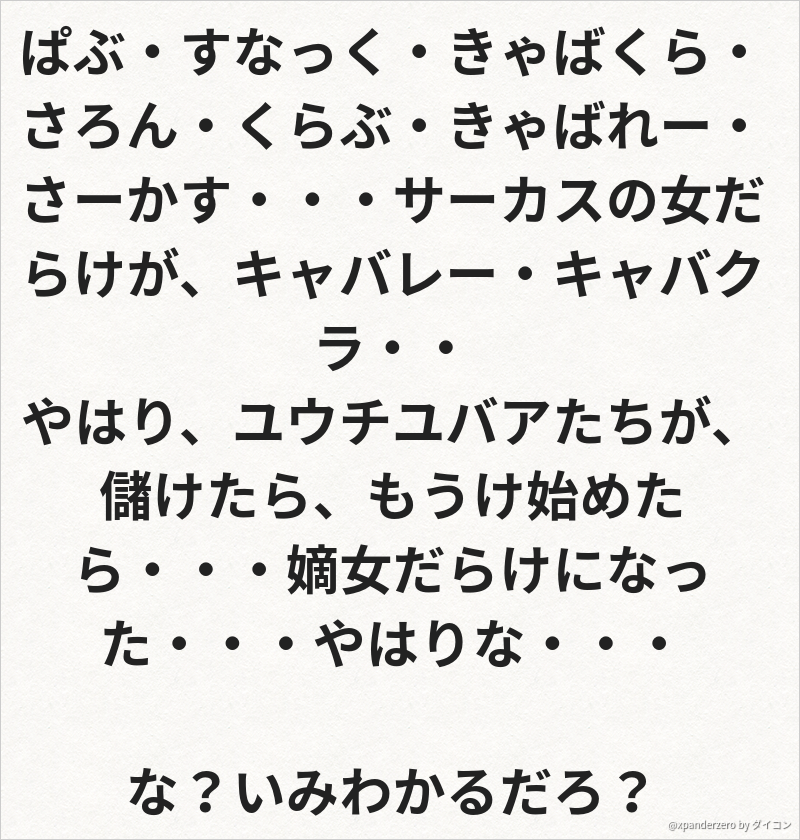 ぱぶ・すなっく・きゃばくら・
さろん・くらぶ・きゃばれー・
さーかす・・・サーカスの女だ
らけが、キャバレー・キャバク
ラ・・
やはり、ユウチユバアたちが、
儲けたら、もうけ始めた
ら・・・嫡女だらけになっ
た・・・やはりな・・・
な？いみわかるだろ？
@xpanderzero by ダイコン